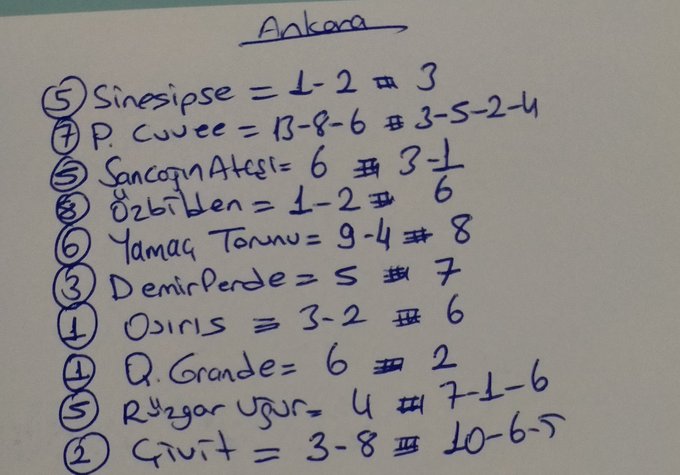 Ankara
5 Sinesipse = 1-2 # 3
7 P. Cuvee = 13-8-6 # 3-5-2-4
5 Sancağın Ateşi = 6 # 3-1
8 Özbilden = 1-2 # 6
6 Yamaç Torunu = 9-4 # 8
3 DemirPerde = 5 # 7
1 Osiris = 3-2 # 6
1 Q. Grande = 6 # 2
5 Rüzgar Uğur = 4 # 7-1-6
2 Çivit = 3-8 # 10-6-5